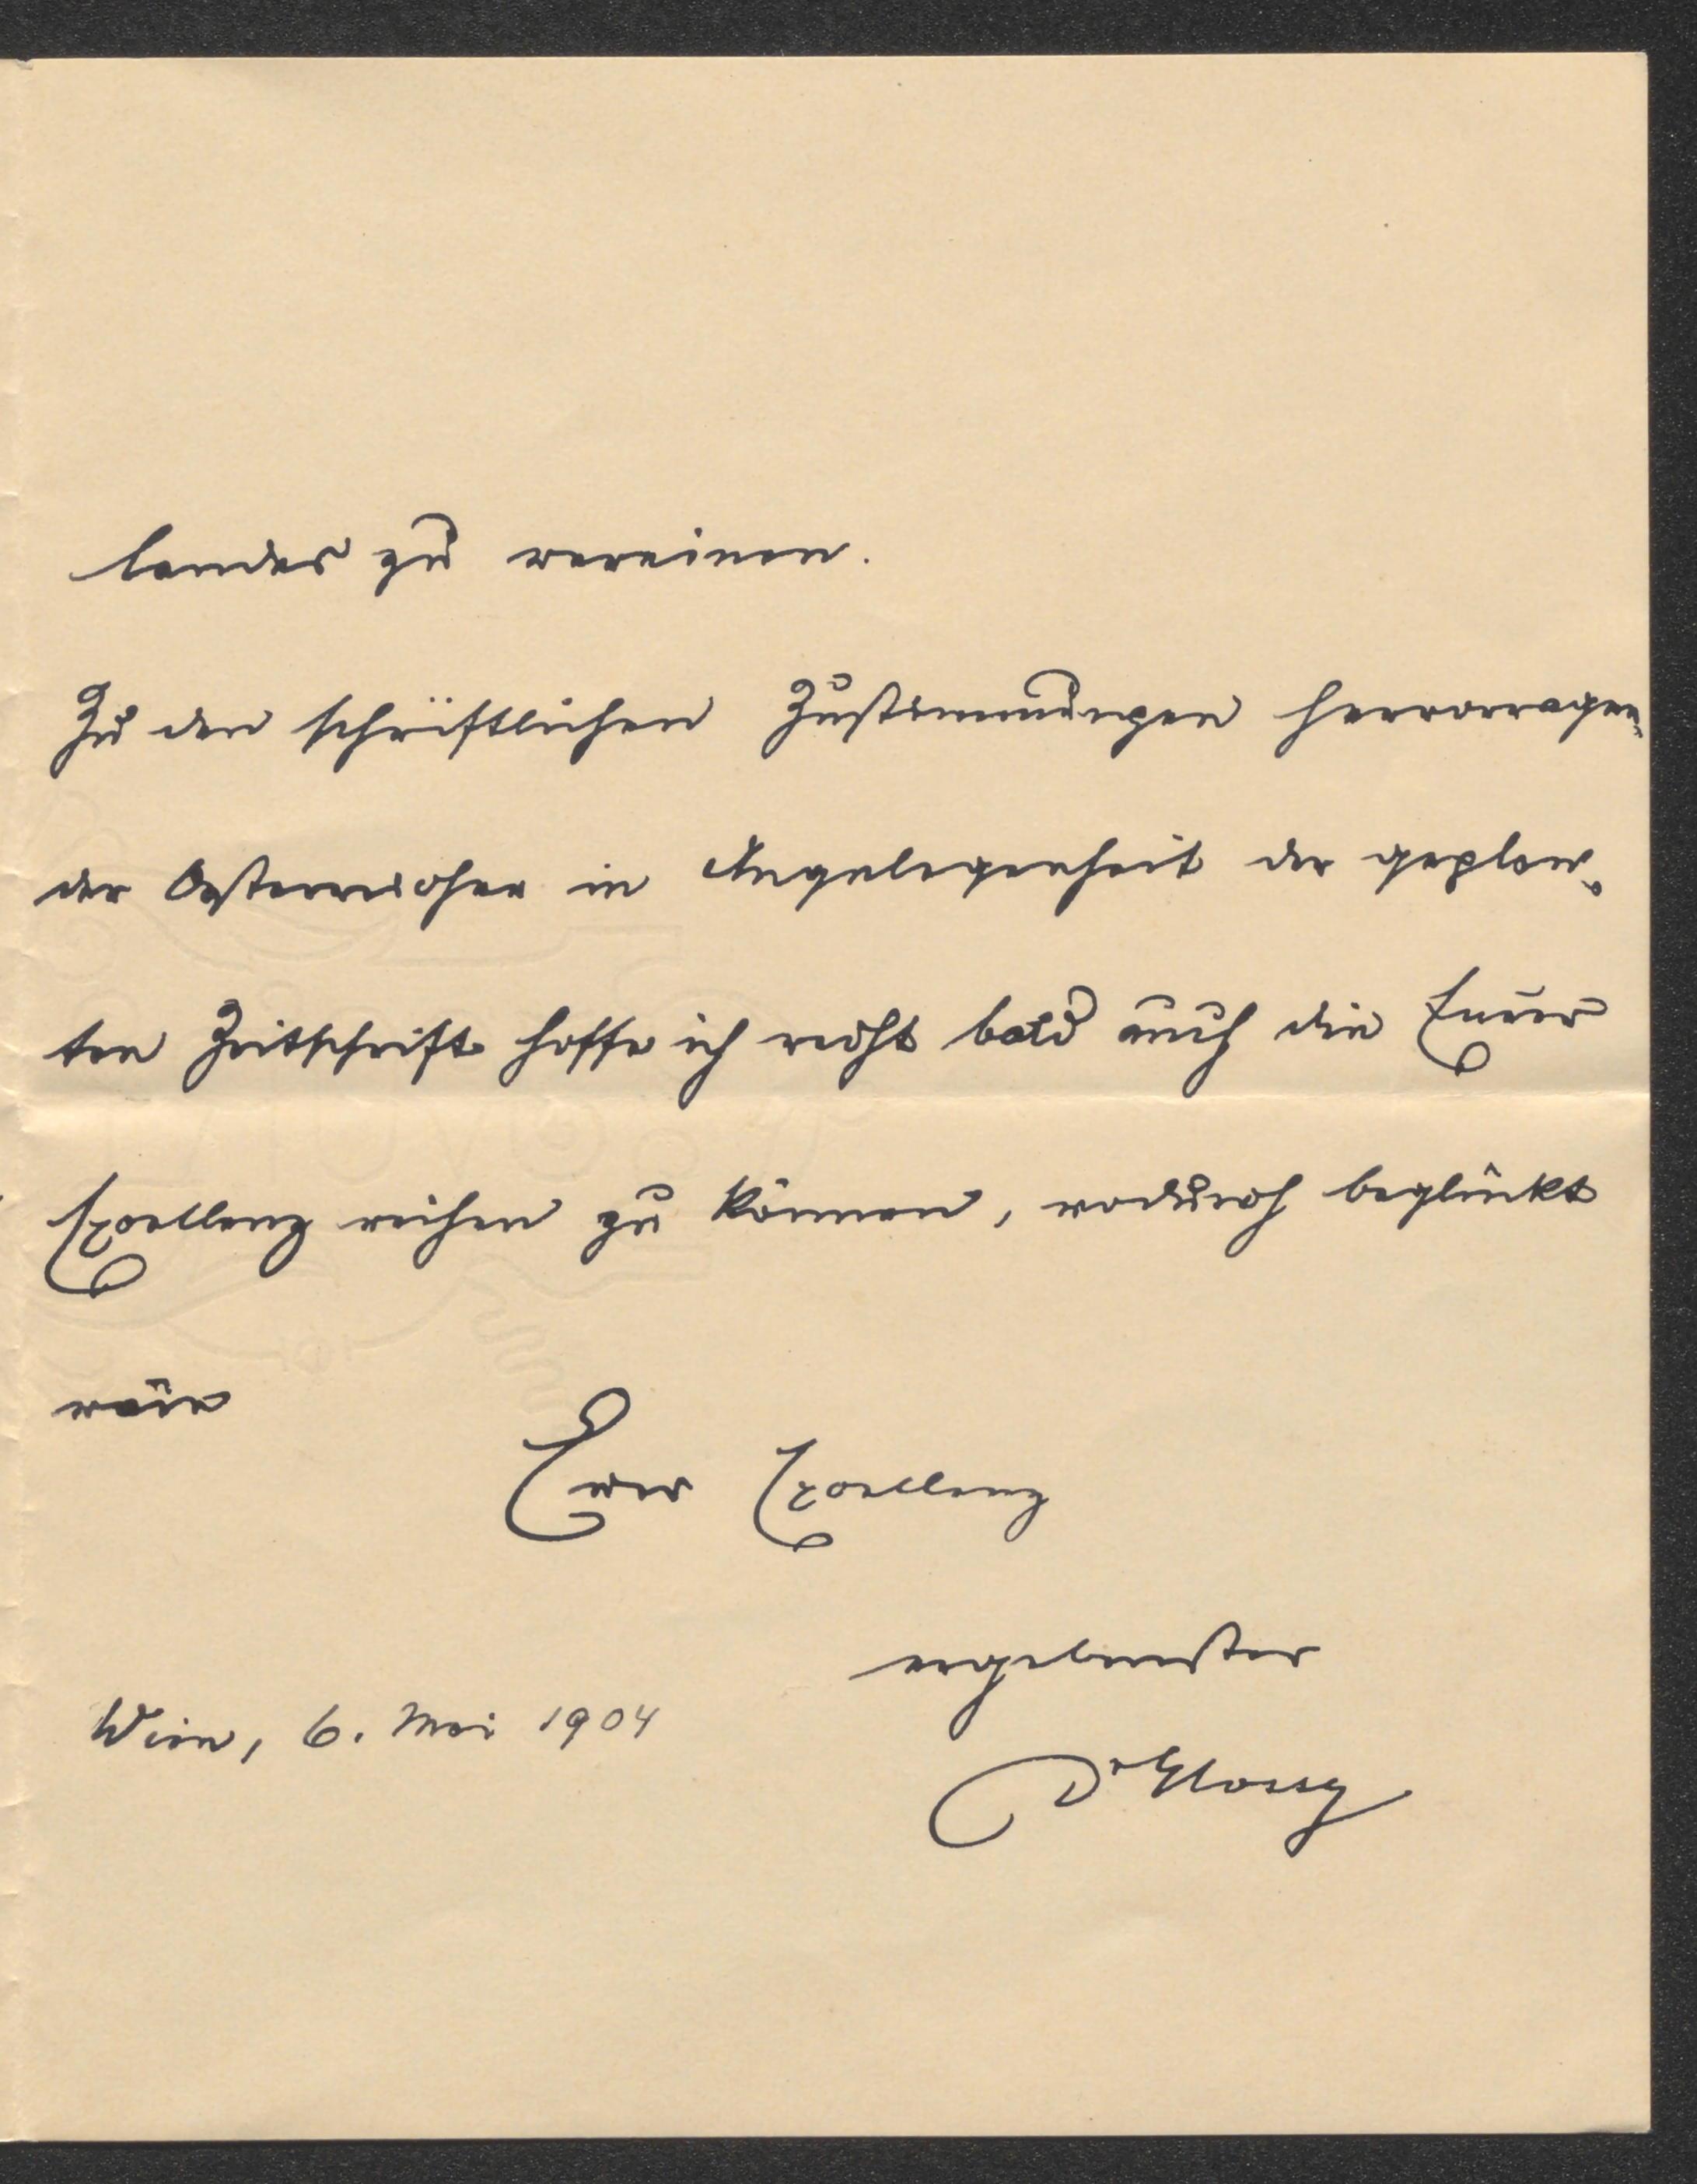 landes zu vereinen.
Zu den schriftlichen Zustimmungen hervorragen-
der Oesterreicher in Angelegenheit der geplan-
ten Zeitschrift hoffe ich recht bald auch die Euerer
Excellenz reihen zu können, wodurch beglückt
wäre
Euer Excellenz
ergebenster
Wien, 6. Mai 1904
Dr Glossy